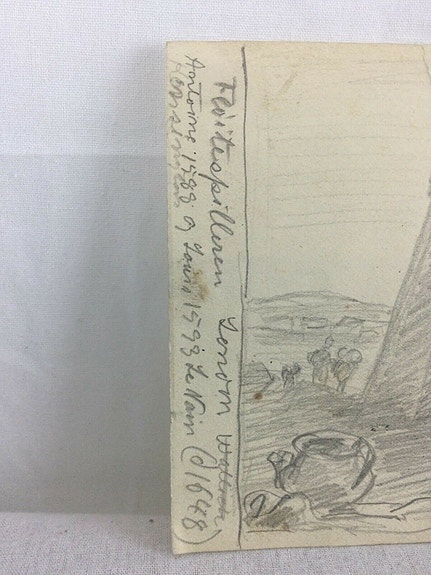 Fløitespilleren London
Antoine 1588 og Louis 1593 Le Nain (d 1648)